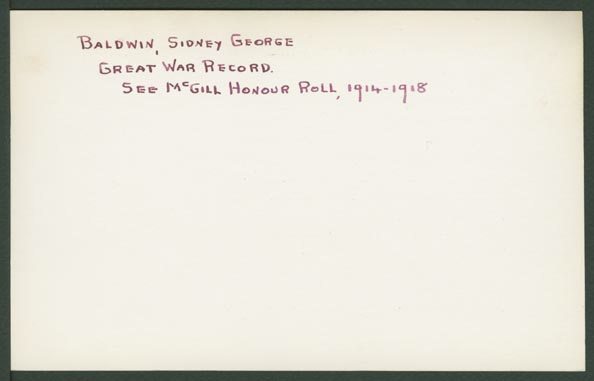 BALDWIN, SIDNEY GEORGE
GREAT WAR RECORD.
SEE McGILL HONOUR ROLL, 1914-1918